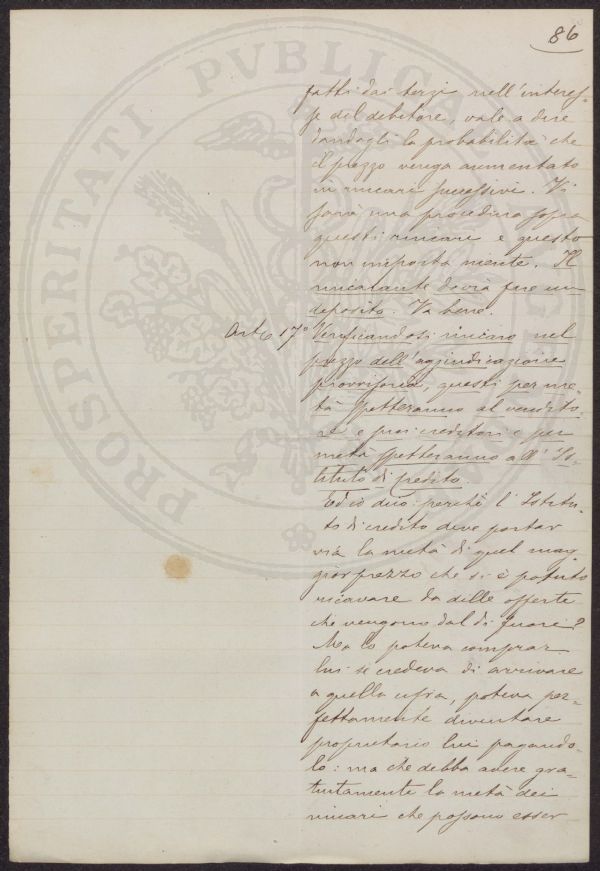 86
fatti dai terzi nell'interes-
se del debitore, vale a dire
dandogli la probabilità che
il prezzo venga aumentato
in rincari successivi. Vi
sarà una procedura sopra
questi rincari e questo
non importa niente. Il
rincarante dovrà fare un
deposito. Va bene.
Art. 17° Verificandosi rincaro nel
prezzo dell'aggiudicazione
provvisoria, questi per me-
tà spetteranno al vendito-
re e suoi creditori e per
metà spetteranno all'Is-
tituto di Credito.
Ed io dico: perchè l'Istitu-
to di credito deve portar
via la metà di quel mag-
gior prezzo che si è potuto
ricavare da delle offerte
che vengono dal di fuori?
Ma lo poteva comprar
lui se credeva di arrivare
a quella cifra, poteva per-
fettamente diventare
proprietario lui pagando-
lo: ma che debba avere gra-
tuitamente la metà dei
rincari che possono esser
PROSPERITATI PVBLICAE